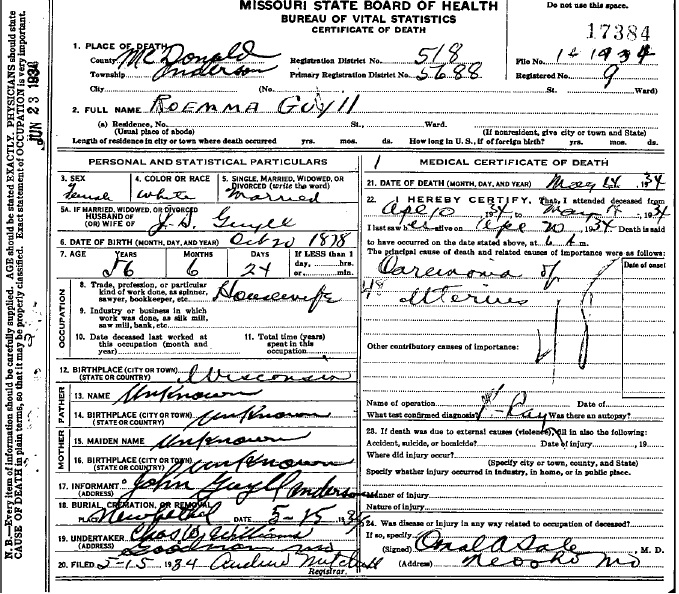 MISSOURI STATE BOARD OF HEALTH
BUREAU OF VITAL STATISTICS
CERTIFICATE OF DEATH
Do not use this space.
17384
1. PLACE OF DEATH
County McDonald Registration District No. 518 File No. 1934
Township Anderson Primary Registration District No. 5688 Registered No. 9
City (No. St. Ward)
2. FULL NAME Roemma Guyll
(a) Residence, No. St., Ward.
(Usual place of abode) (If nonresident, give city or town and State)
Length of residence in city or town where death occurred yrs. mos. ds. How long in U. S., if of foreign birth? yrs. mos. ds.
PERSONAL AND STATISTICAL PARTICULARS
3. SEX Female
4. COLOR OR RACE White
5. SINGLE, MARRIED, WIDOWED, OR DIVORCED (write the word) Married
5A. IF MARRIED, WIDOWED, OR DIVORCED
HUSBAND OF
(OR) WIFE OF J. D. Guyll
6. DATE OF BIRTH (MONTH, DAY, AND YEAR) Oct 20 1878
7. AGE YEARS MONTHS DAYS If LESS than 1
56 6 24 day, hrs.
or min.
OCCUPATION
8. Trade, profession, or particular
kind of work done, as spinner,
sawyer, bookkeeper, etc. Housewife
9. Industry or business in which
work was done, as silk mill,
saw mill, bank, etc.
10. Date deceased last worked at
this occupation (month and
year)
11. Total time (years)
spent in this
occupation
12. BIRTHPLACE (CITY OR TOWN)
(STATE OR COUNTRY) Wisconsin
FATHER
13. NAME Unknown
14. BIRTHPLACE (CITY OR TOWN)
(STATE OR COUNTRY) Unknown
MOTHER
15. MAIDEN NAME Unknown
16. BIRTHPLACE (CITY OR TOWN)
(STATE OR COUNTRY) Unknown
17. INFORMANT John Guyll Anderson
(ADDRESS)
18. BURIAL, CREMATION, OR REMOVAL
PLACE DATE 5-15 1934
19. UNDERTAKER Chas Williams
(ADDRESS) Goodman Mo
20. FILED 5-15 1934 Audine Mitchell
Registrar.
MEDICAL CERTIFICATE OF DEATH
21. DATE OF DEATH (MONTH, DAY, AND YEAR) May 14 1934
22. I HEREBY CERTIFY, That I attended deceased from
Apr 10 1934 to May 1934
I last saw her alive on Apr 20 1934 Death is said
to have occurred on the date stated above, at 6 A m.
The principal cause of death and related causes of importance were as follows:
Date of onset
Carcinoma of
Uterus
48
Other contributory causes of importance:
Name of operation Date of
What test confirmed diagnosis? X-Ray Was there an autopsy?
23. If death was due to external causes (violence), fill in also the following:
Accident, suicide, or homicide? Date of injury , 19
Where did injury occur?
(Specify city or town, county, and State)
Specify whether injury occurred in industry, in home, or in public place.
Manner of injury
Nature of injury
24. Was disease or injury in any way related to occupation of deceased?
If so, specify
(Signed) Sale, M. D.
(Address) Neosho Mo
N. B.—Every item of information should be carefully supplied. AGE should be stated EXACTLY. PHYSICIANS should state
CAUSE OF DEATH in plain terms, so that it may be properly classified. Exact statement of OCCUPATION is very important.
JUN 23 1934